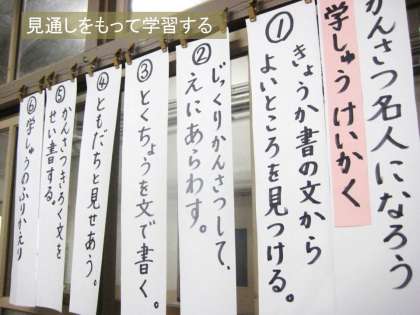 見通しをもって学習する
かんさつ名人になろう
学しゅうけいかく
①きょうか書の文から
よいところを見つける。
②じっくりかんさつして、
えにあらわす。
③とくちょうを文で書く。
④ともだちと見せあう。
⑤かんさつきろく文を
せい書する。
⑥学しゅうのふりかえり